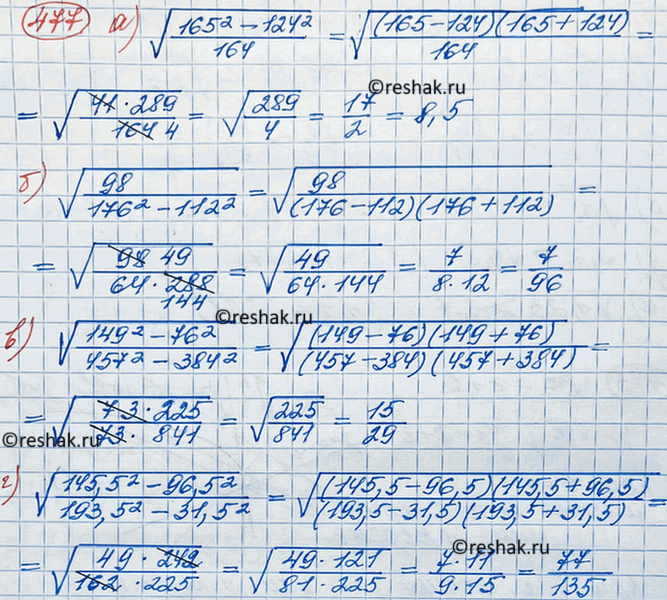 477 а) √(165² − 124² / 164) = √((165−124)(165+124) / 164) =
©reshak.ru
= √(41 · 289 / 164 4) = √(289 / 4) = 17/2 = 8,5
б) √(98 / 176² − 112²) = √(98 / (176−112)(176+112)) =
= √(98 49 / 64 · 288 144) = √(49 / 64 · 144) = 7 / 8·12 = 7/96
©reshak.ru
в) √(149² − 76² / 457² − 384²) = √((149−76)(149+76) / (457−384)(457+384)) =
= √(73 · 225 / 73 · 841) = √(225 / 841) = 15/29
©reshak.ru
г) √(145,5² − 96,5² / 193,5² − 31,5²) = √((145,5−96,5)(145,5+96,5) / (193,5−31,5)(193,5+31,5)) =
©reshak.ru
= √(49 · 242 / 162 · 225) = √(49 · 121 / 81 · 225) = 7·11 / 9·15 = 77/135